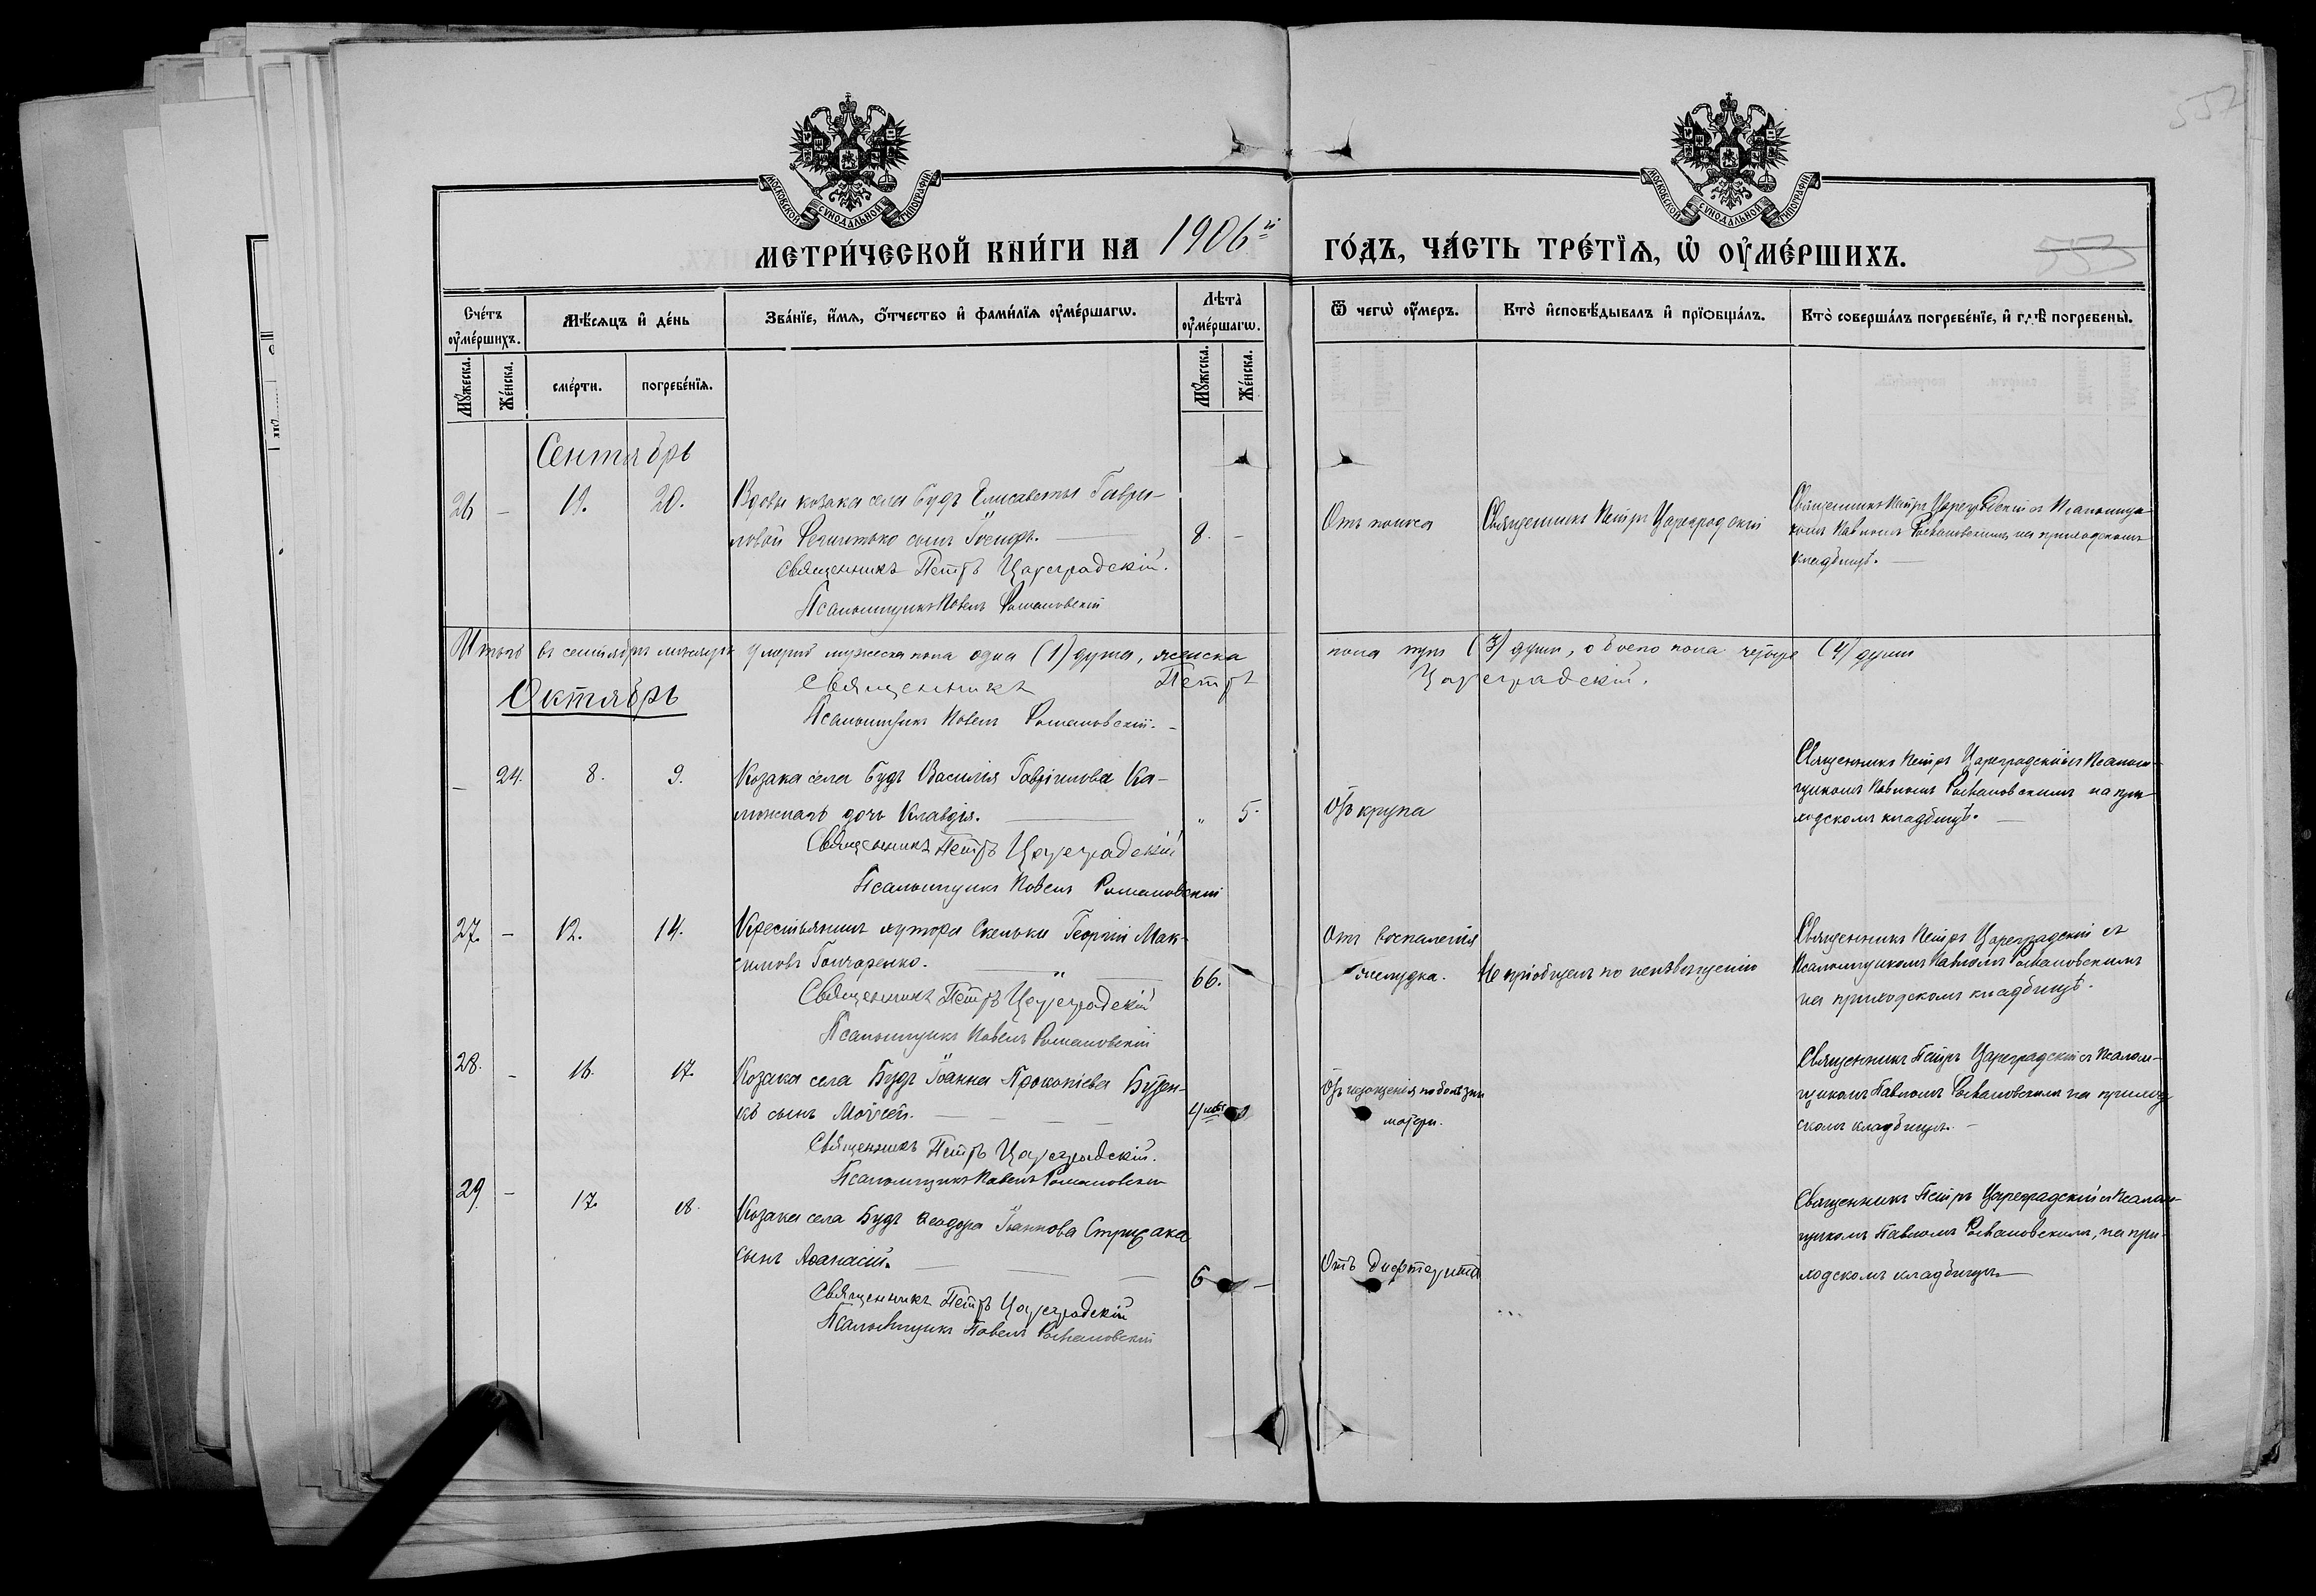 557
МОСКОВСКОЙ СУНОДАЛЬНОЙ ТИПОГРАФІИ
МОСКОВСКОЙ СУНОДАЛЬНОЙ ТИПОГРАФІИ
МЕТРИ́ЧЕСКОЙ КНИ́ГИ НА 1906й ГО́ДЪ, ЧА́СТЬ ТРЕ́ТЇѦ, Ѡ҆ ОУ҆МЕ́РШИХЪ.
553
Сче́тъ оу҆ме́ршихъ.
Мѣ́сѧцъ и҆ де́нь
Зва́нїе, и҆́мѧ, ѻ҆́тчество и҆ фами́лїѧ оу҆ме́ршагѡ.
Лѣта̀ оу҆ме́ршагѡ.
Ѿ чегѡ̀ оу҆́меръ.
Кто̀ и҆сповѣ́дывалъ и҆ прїѡбща́лъ.
Кто̀ соверша́лъ погребе́нїе, и҆ гдѣ̀ погребены̀.
Мꙋ́жеска. Же́нска. сме́рти. погребе́нїѧ. Мꙋ́жеска. Же́нска.
Сентябрь
26 – 19. 20. Вдовы козака села Будъ Елисаветы Гаври-
ловой сынъ Іосифъ. 8. –
Священникъ Петръ Цареградскій.
Псаломщикъ Павелъ Романовскій
Священникъ Петръ Цареградскій
Священникъ Петръ Цареградскій съ Псаломщи-
комъ Павломъ Романовскимъ на приходскомъ
кладбищѣ.
Итого въ сентябрѣ мѣсяцѣ умерло мужеска пола одна (1) душа, женска пола три (3) души, обоего пола четыре (4) души
Священникъ Петръ Цареградскій.
Октябрь
Псаломщикъ Павелъ Романовскій.
– 24. 8. 9. Козака села Будъ Василія Гавріилова Ка-
дочь Клавдія. " 5.
Священникъ Петръ Цареградскій
Псаломщикъ Павелъ Романовскій
Отъ крупа
Священникъ Петръ Цареградскій съ Псалом-
щикомъ Павломъ Романовскимъ на при-
ходскомъ кладбищѣ.
27. – 12. 14. Крестьянинъ хутора Скельки Георгій Мак-
симовъ Гончаренко. " 66.
Священникъ Петръ Цареградскій
Псаломщикъ Павелъ Романовскій
Отъ воспаленія
желудка. Не пріобщенъ по неизвѣщенію
Священникъ Петръ Цареградскій съ
Псаломщикомъ Павломъ Романовскимъ
на приходскомъ кладбищѣ.
28. – 16. 17. Козака села Будъ Іоанна Прокопіева
сынъ Моѵсей.
Священникъ Петръ Цареградскій.
Псаломщикъ Павелъ Романовскій
матери.
Священникъ Петръ Цареградскій съ Псалом-
щикомъ Павломъ Романовскимъ на приход-
скомъ кладбищѣ.
29. – 17. 18. Козака села Будъ Ѳеодора Іоаннова
сынъ Аѳанасій. 6 –
Священникъ Петръ Цареградскій
Псаломщикъ Павелъ Романовскій
Отъ дифтерита
Священникъ Петръ Цареградскій съ Псалом-
щикомъ Павломъ Романовскимъ, на при-
ходскомъ кладбищѣ